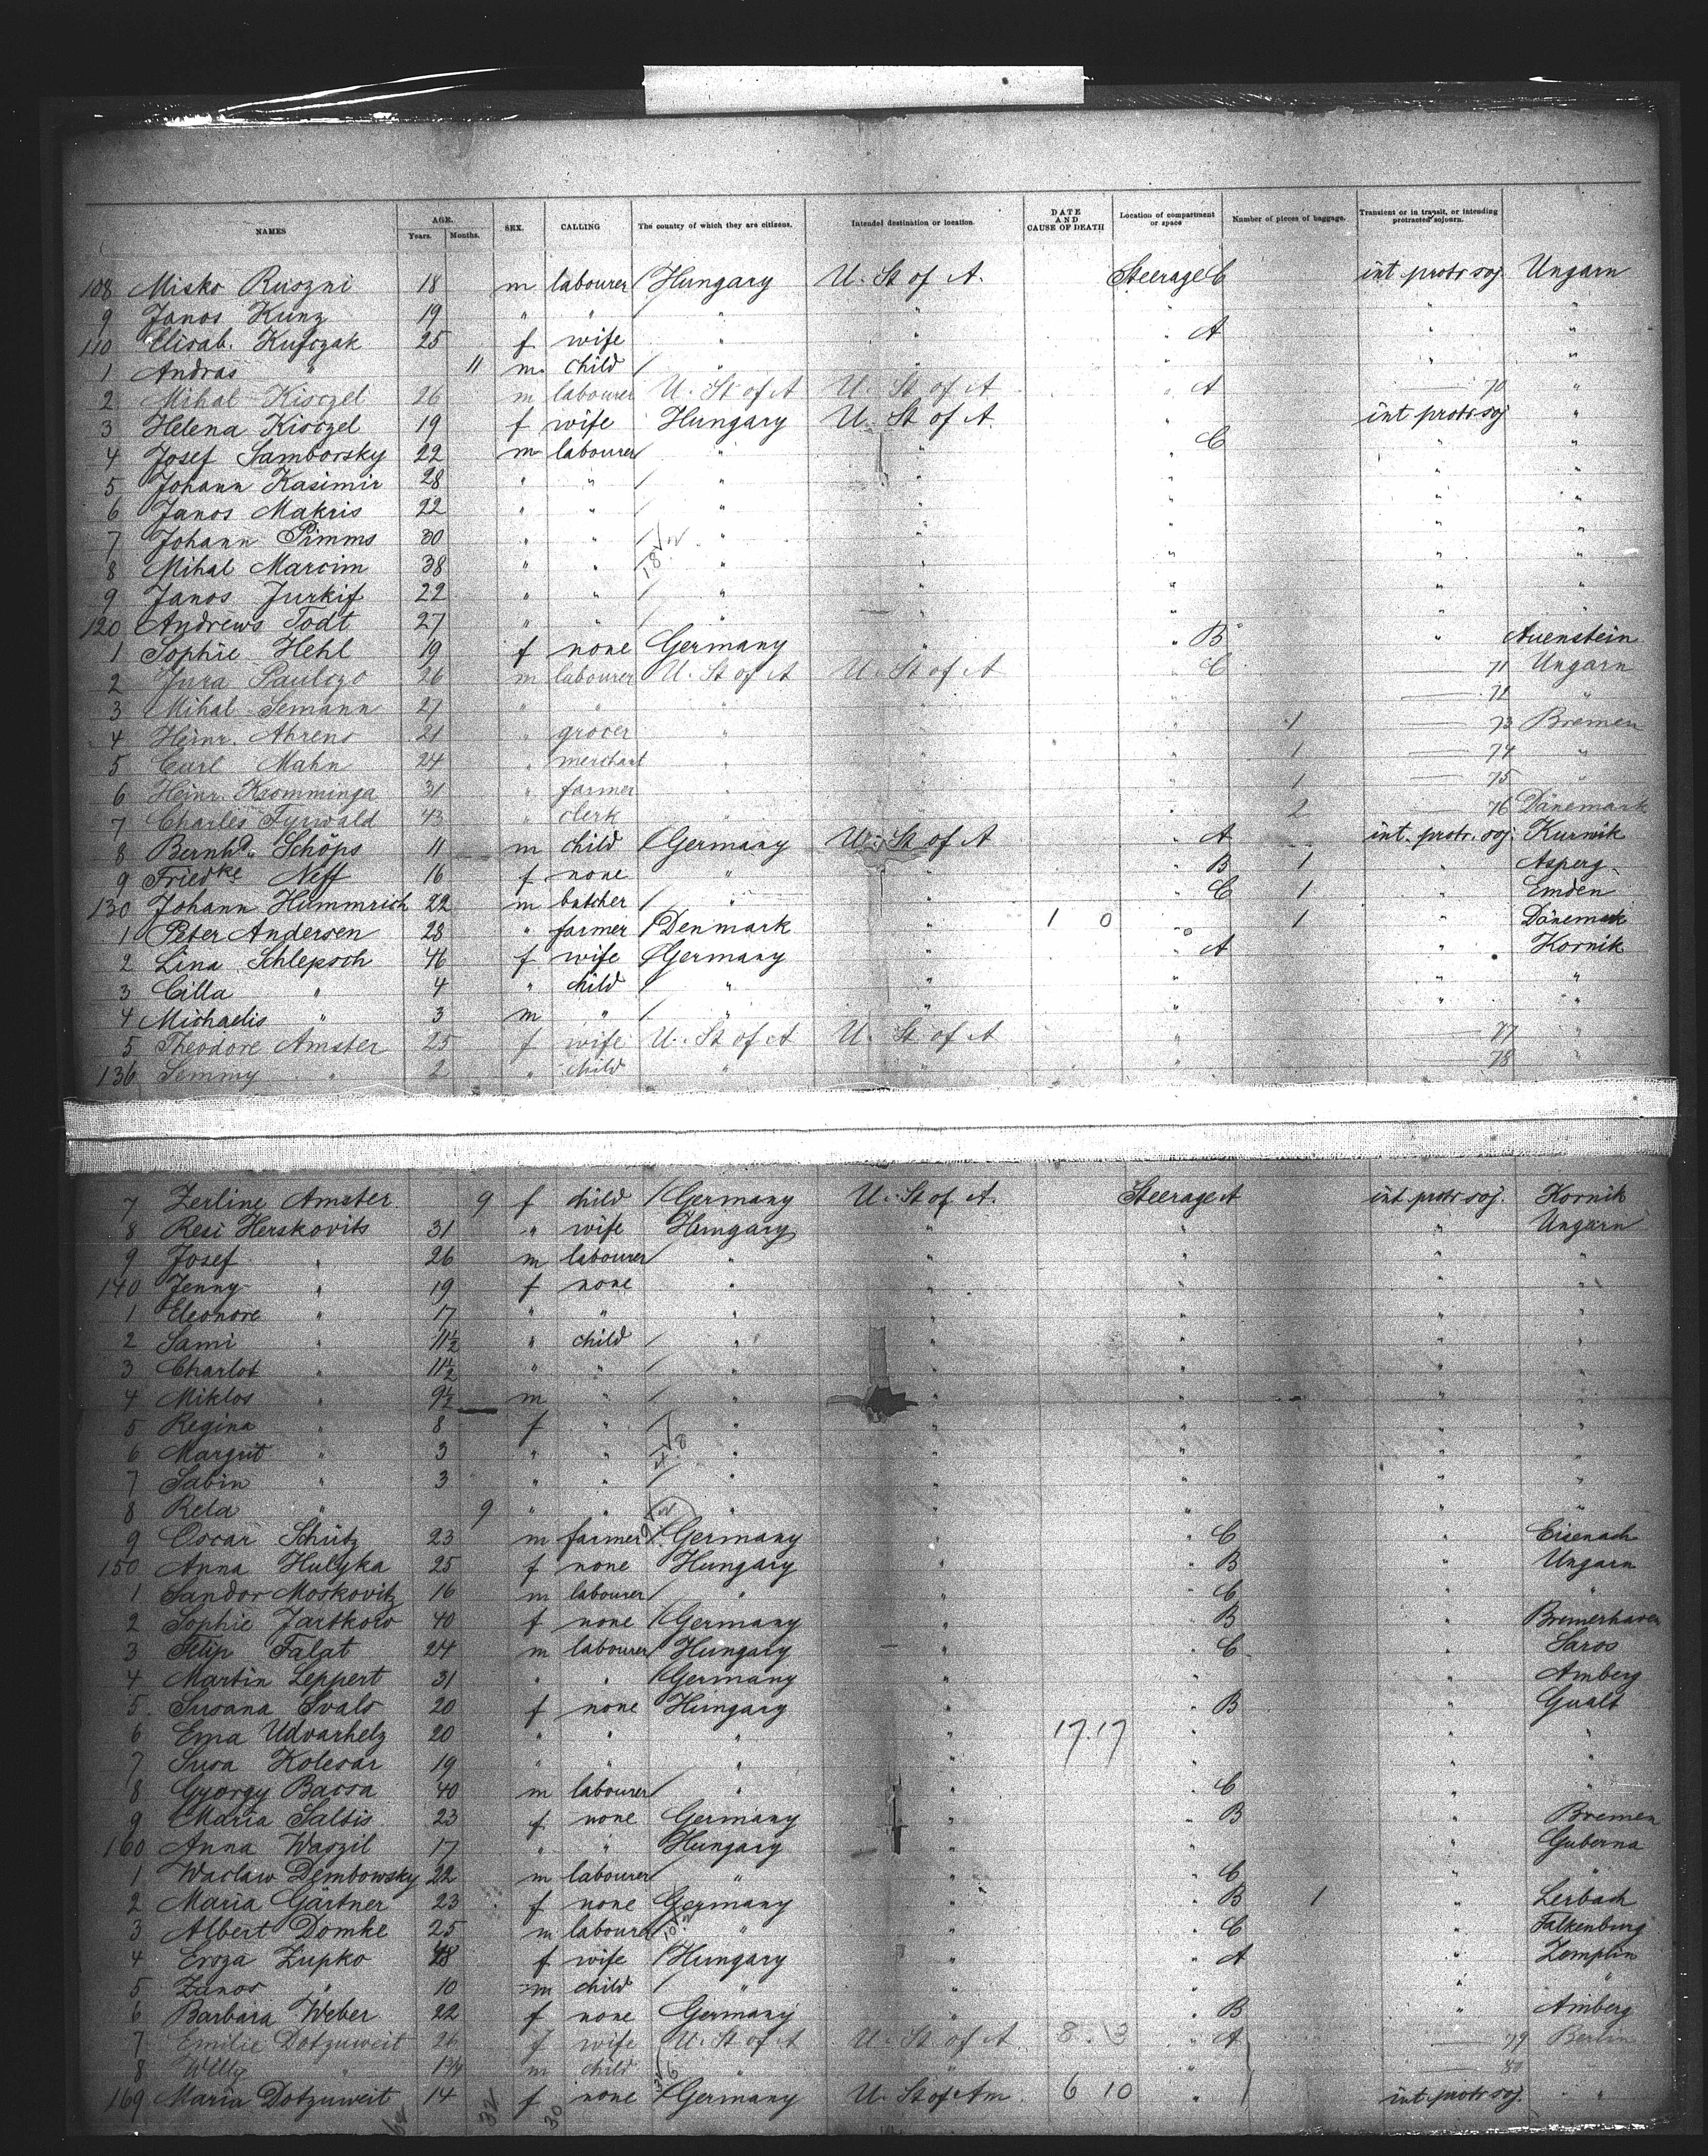 NAMES AGE. Years. Months. SEX. CALLING The country of which they are citizens. Intended destination or location. DATE AND CAUSE OF DEATH Location of compartment or space Number of pieces of baggage. Transient or in transit, or intending protracted sojourn.
108 Misko Ruszni 18 m labourer / Hungary U. St of A. Steerage C int protr soj. Ungarn
9 Janos Kunz 19 " " / " " " " "
110 Elisab. Kufczak 25 f wife " " " A " "
1 Andras " 11 m child / " " " " "
2 Mihal Kisczel 26 m labourer U. St of A U. St of A " A — 70 "
3 Helena Kisczel 19 f wife Hungary U. St of A " int protr soj "
4 Josef Samborsky 22 m labourer / " " " C " "
5 Johann Kasimir 28 " " / " " " " "
6 Janos Makris 22 " " / " " " " "
7 Johann Pimms 30 " " / " " " " "
8 Mihal Marcim 38 " " " " " " "
9 Janos Jurkif 22 " " / " " " " "
120 Andrews Todt 27 " " / " " " " "
1 Sophie Hehl 19 f none Germany " " B " Auenstein
2 Jura Paulczo 26 m labourer U. St of A U. St of A " C — 71 Ungarn
3 Mihal Semann 27 " " " " " — 72 "
4 Heinr. Ahrens 21 " grocer " " " 1 — 73 Bremen
5 Carl Mahn 24 " merchant " " " 1 — 74 "
6 Heinr. Kromminga 31 " farmer " " " 1 — 75 "
7 Charles Fyrwald 43 " clerk " " " 2 — 76 Dänemark
8 Bernhd. Schöps 11 m child / Germany U. St of A " A int. protr. soj. Kurnik
9 Friedke Neff 16 f none " " " B 1 " Asperg
130 Johann Hummrich 22 m butcher / " " " C 1 " Emden
1 Peter Andersen 28 " farmer / Denmark " 1 0 " " 1 " Dänemark
2 Lina Schlepsch 46 f wife / Germany " " A " Kornik
3 Cilla " 4 " child / " " " " "
4 Michaelis " 3 m " / " " " " "
5 Theodore Amster 25 f wife U. St of A U. St of A " — 77 "
136 Semmy " 2 " child " " " — 78 "
7 Zerline Amster 9 f child / Germany U. St of A. Steerage A int protr soj. Kornik
8 Resi Herskovits 31 " wife Hungary " " " Ungarn
9 Josef " 26 m labourer / " " " " "
140 Jenny " 19 f none " " " " "
1 Eleonore " 17 " " " " " " "
2 Sami " 11½ " child / " " " " "
3 Charlot " 11½ " " / " " " " "
4 Miklos " 9½ m " / " " " " "
5 Regina " 8 f " / " " " " "
6 Margrit " 3 " " " " " " "
7 Sabin " 3 " " / " " " " "
8 Rela " 9 " " " " " " "
9 Oscar Schütz 23 m farmer / Germany " " C " Eisenach
150 Anna Hulyka 25 f none Hungary " " B " Ungarn
1 Sandor Moskovitz 16 m labourer / " " " C " "
2 Sophie Jastkow 40 f none / Germany " " B " Bremerhaven
3 Filip Falat 24 m labourer / Hungary " " C " Saros
4 Martin Leppert 31 " " / Germany " " " Amberg
5. Susana Svalo 20 f none Hungary " " B " Gualt
6 Ema Udvarhelz 20 " " " " 17.17 " " "
7 Susa Kolesar 19 " " " " " " "
8 Gyorgy Bacsa 40 m labourer / " " " C " "
9 Maria Saltis 23 f none Germany " " B " Bremen
160 Anna Waszil 17 " " Hungary " " " Guberna
1 Waclaw Dembowsky 22 m labourer / " " " C " "
2 Maria Gärtner 23 f none Germany " " B 1 " Lerbach
3 Albert Domke 25 m labourer " " " C " Falkenburg
4 Ersza Zupko 48 f wife / Hungary " " A " Zemplin
5 Zanos " 10 m child / " " " " "
6 Barbara Weber 22 f none Germany " " B " Amberg
7 Emilie Dotzuweit 26 f wife U. St of A U. St. of A 8. 3 " A — 79 Berlin
8 Willy " 1¾ m child " " " — 80 "
169 Maria Dotzuweit 14 f none / Germany U. St of Am 6 10 " int. protr soj. "